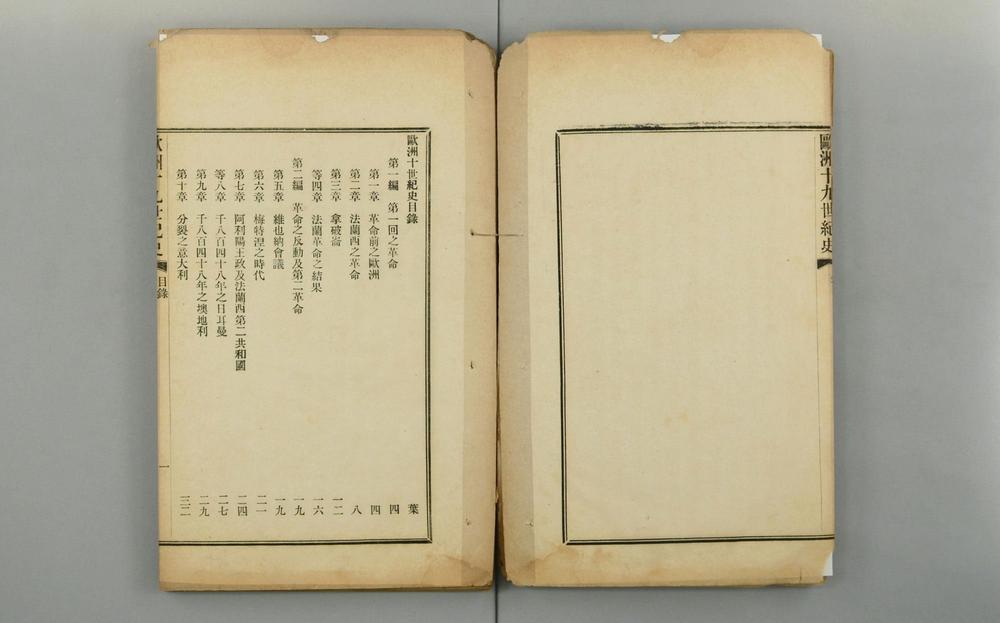 歐洲十九世紀史
歐洲十世紀史目錄
葉
第一編 第一回之革命 四
第一章 革命前之歐洲 四
第二章 法蘭西之革命 八
第三章 拿破崙 一二
等四章 法蘭革命之結果 一六
第二編 革命之反動及第二革命 一九
第五章 維也納會議 一九
第六章 梅特涅之時代 二一
第七章 阿利陽王政及法蘭西第二共和國 二四
等八章 千八百四十八年之日耳曼 二七
第九章 千八百四十八年之墺地利 二九
第十章 分裂之意大利 三二
歐洲十九世紀史 目錄 一